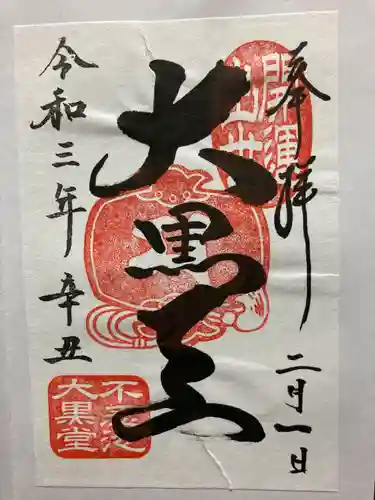 奉拝
二月一日
開運
出世
大黒天
令和三年 辛丑
不忍池
大黒堂